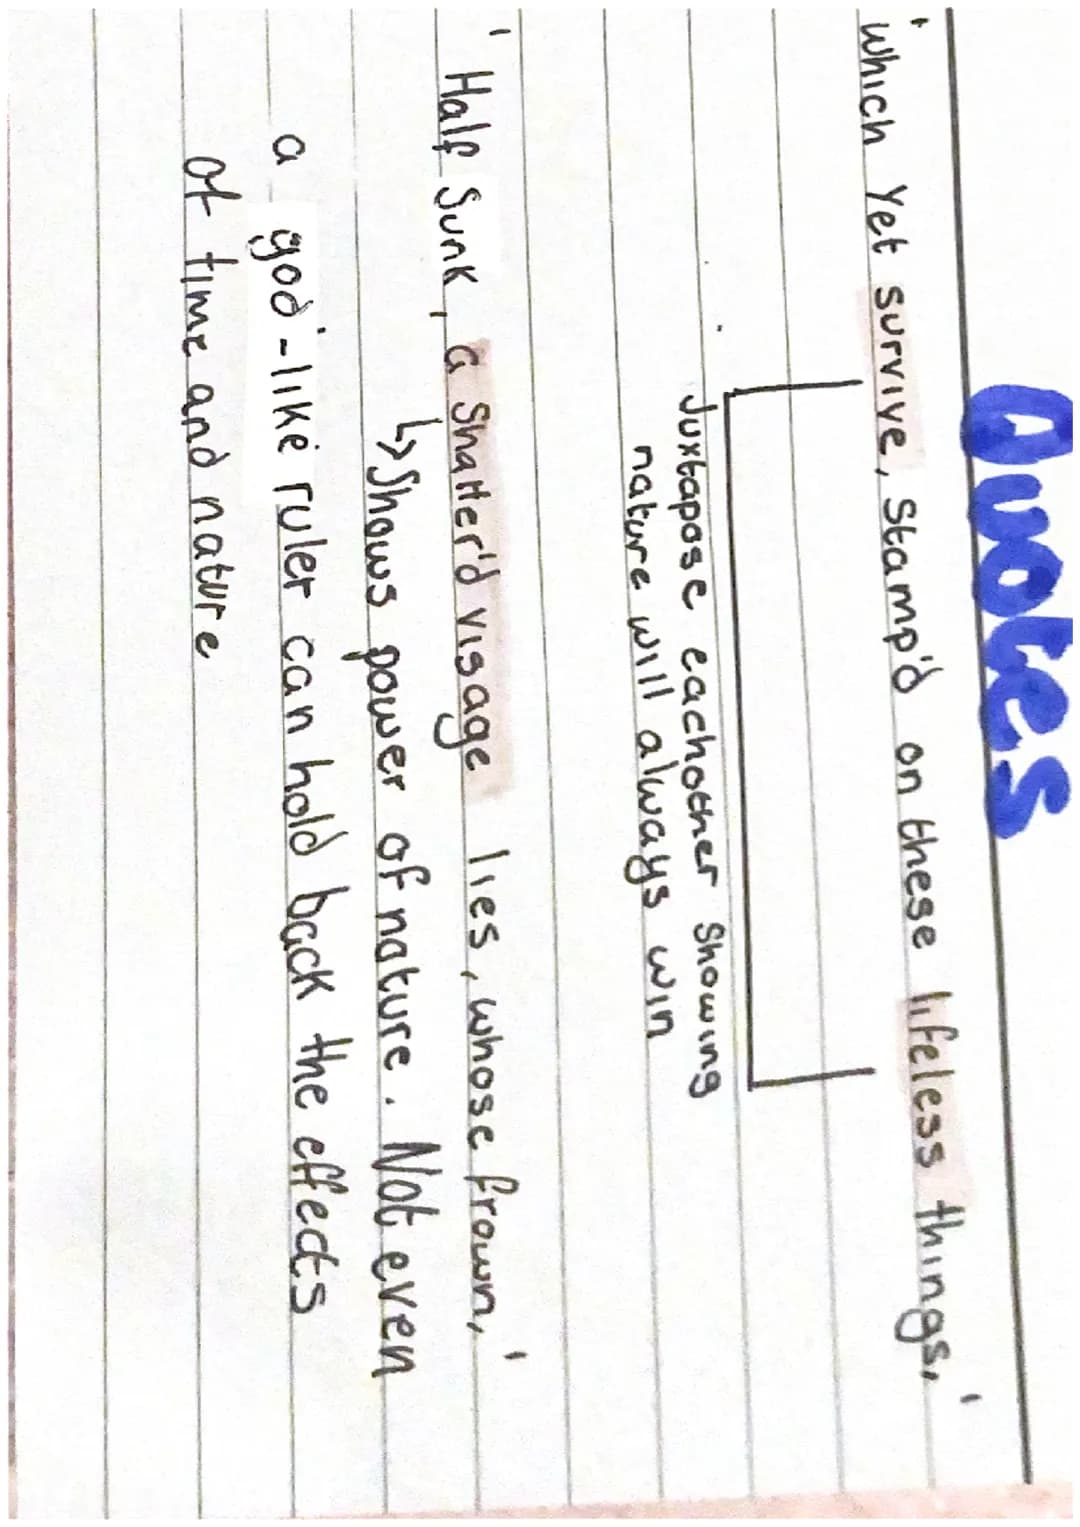 Quotes
'which Yet survive, Stamp'd on these lifeless things,'
Juxtapose eachother showing
nature will always win
'Half Sunk, a Shatter'd visage lies, whose frown,'
↳ Shows power of nature. Not even
a god-like ruler can hold back the effects
of time and nature